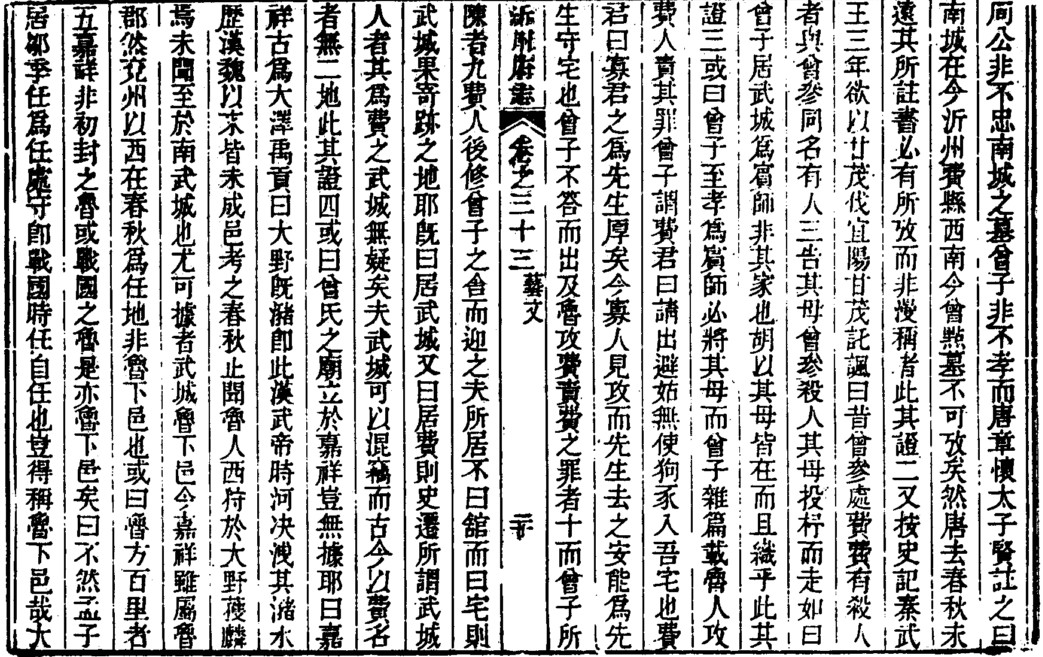 周公非不忠南城之墓曾子非不孝而唐章懷太子賢註之曰
南城在今沂州費縣西南今曾點墓不可攷矣然唐去春秋未
遠其所註書必有所攷而非漫稱者此其證二又按史記秦武
王三年欲以甘茂伐宜陽甘茂託諷曰昔曾參處費費有殺人
者與曾參同名有人三告其母曾參殺人其母投杼而走如曰
曾子居武城爲賓師非其家也胡以其母皆在而且織乎此其
證三或曰曾子至孝爲賓師必將其母而曾子雜篇載魯人攻
費人責其罪曾子謂費君曰請出避姑無使狗豕入吾宅也費
君曰寡君之爲先生厚矣今寡人見攻而先生去之安能爲先
生守宅也曾子不答而出及魯攻費責費之罪者十而曾子所
沂州府志 卷之三十三 藝文 二十
陳者九費人後修曾子之舍而迎之夫所居不曰舘而曰宅則
武城果寄跡之地耶旣曰居武城又曰居費則史遷所謂武城
人者其爲費之武城無疑矣夫武城可以混稱而古今以費名
者無二地此其證四或曰曾氏之廟立於嘉祥豈無據耶曰嘉
祥古爲大澤禹貢曰大野旣潴卽此漢武帝時河决洩其潴水
歷漢魏以來皆未成邑考之春秋止聞魯人西狩於大野獲麟
焉未聞至於南武城也尤可據者武城魯下邑今嘉祥雖屬魯
郡然兗州以西在春秋爲任地非魯下邑也或曰魯方百里者
五嘉祥非初封之魯或戰國之魯是亦魯下邑矣曰不然孟子
居鄒季任爲任處守卽戰國時任自任也豈得稱魯下邑哉大